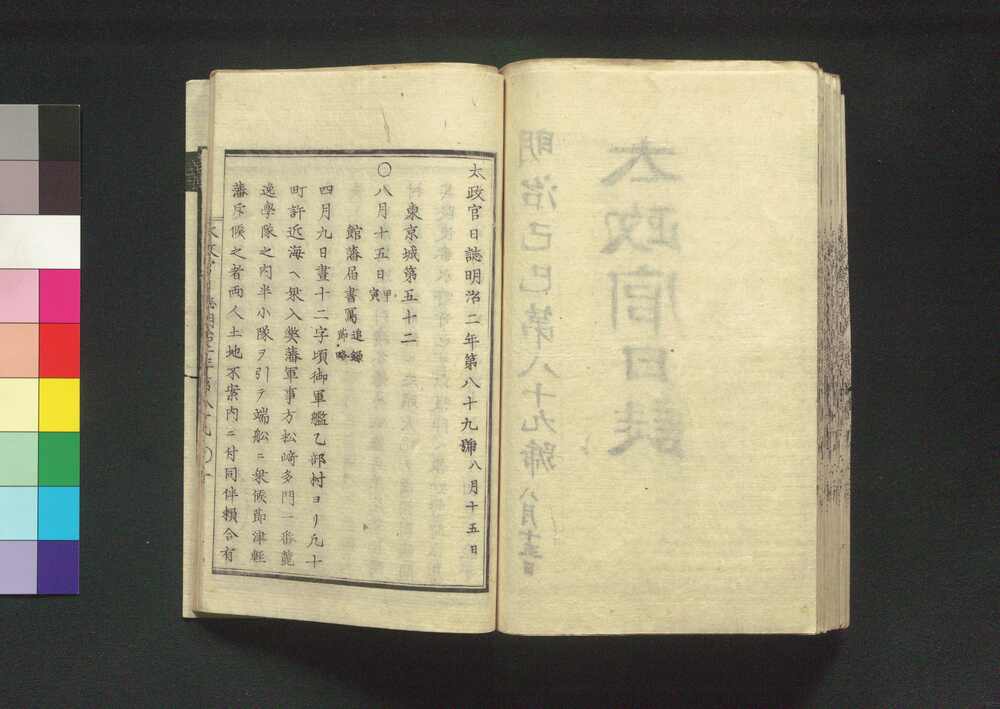 太政官日誌明治二年第八十九號 八月十五日
東京城第五十二
〇八月十五日甲寅
館藩届書寫 追録節略
四月九日晝十二字頃御軍艦乙部村ヨリ凡十
町許近海ヘ乗入弊藩軍事方松崎多門一番
逸學隊之内半小隊ヲ引テ端船ニ乗候節津軽
藩斥候之者両人土地不案内ニ付同伴頼合有